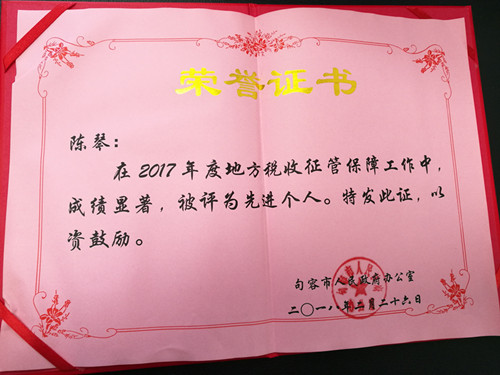 荣誉证书
陈琴：
在2017年度地方税收征管保障工作中，
成绩显著，被评为先进个人。特发此证，以
资鼓励。
句容市人民政府办公室
二〇一八年二月二十六日